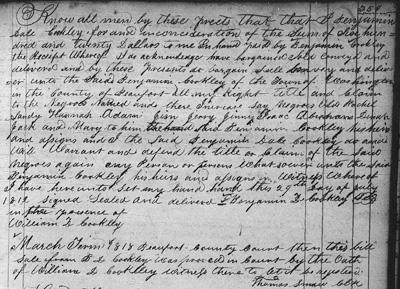 254
Know all men by these presets that that I Benjamin
Dale Cockley for and inconcideration of the Sum of Six hun-
dred and twenty Dollars to me In hand paid by Benjamin Cockley
the Receipt Whereof I do acknowledge have bargained sold convey and
delivered and by these Presents do bargain Sell Convey and deliv-
er unto the Said Benjamin Cockley of the Town of Washington
in the County of Beaufort all my Right Title and Claim
to the Negroes Named and there Increase Say Negroes Old Rachel
Sandy Hannah Adam Gim Georg Jinny Isaac Abraham
Jack and Mary to him the Said Benjamin Cockley his heirs
and assigns and I the Said Benjamin Dale Cockley do and
Will Warrant and defend the title or Claim of the Said
Negroes again any Person or persons Whatsoever unto the Said
Benjamin Cockley his heirs and assigns in Witness Whereof
I have hereunto Set my hand this 29th Day of July
Signed Sealed and deliverd Benjamin D Cockley
in presence of
William D Cockley
March Term 1818 Beaufort County Court then this bill
Sale from B D Cockley was proved in Court by the Oath
of William D Cockley Witness there to Let it be registerd
Thomas Smaw Clk